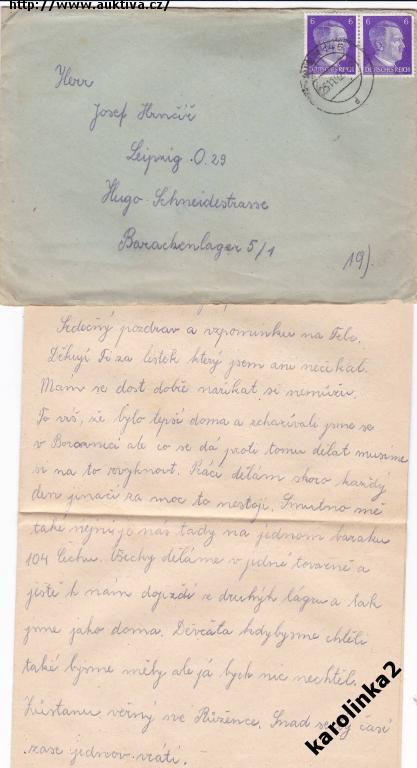 http://www.auktiva.cz/
6 6
DEUTSCHES REICH DEUTSCHES REICH
Herr
Josef Hrnčíř
Leipzig O.29
Hugo-Schneidestrasse
Barackenlager 5/1
19).
Srdečný pozdrav a vzpomínku na Tebe.
Děkuji Ti za lístek který jsem ani nečekal.
Mám se dost dobře naříkat si nemůžu.
To víš, že bylo lepší doma a jsme se
v ale co se dá proti tomu dělat musíme
si na to zvyknout. Práci dělám skoro každý
den jinačí za moc to nestojí. Smutno mě
také nejni je nás tady na jednom baraku
104 Čechu. Všechy děláme v jedné tovarně a
ještě k nám dojezdí z druhých lágru a tak
jsme jako doma. Děvčata kdybysme chtěli
také bysme měly ale já bych nic nechtěl.
Zůstanu věrný své Růžence. Snad se ty časi
zase jednou vrátí.
karolinka2